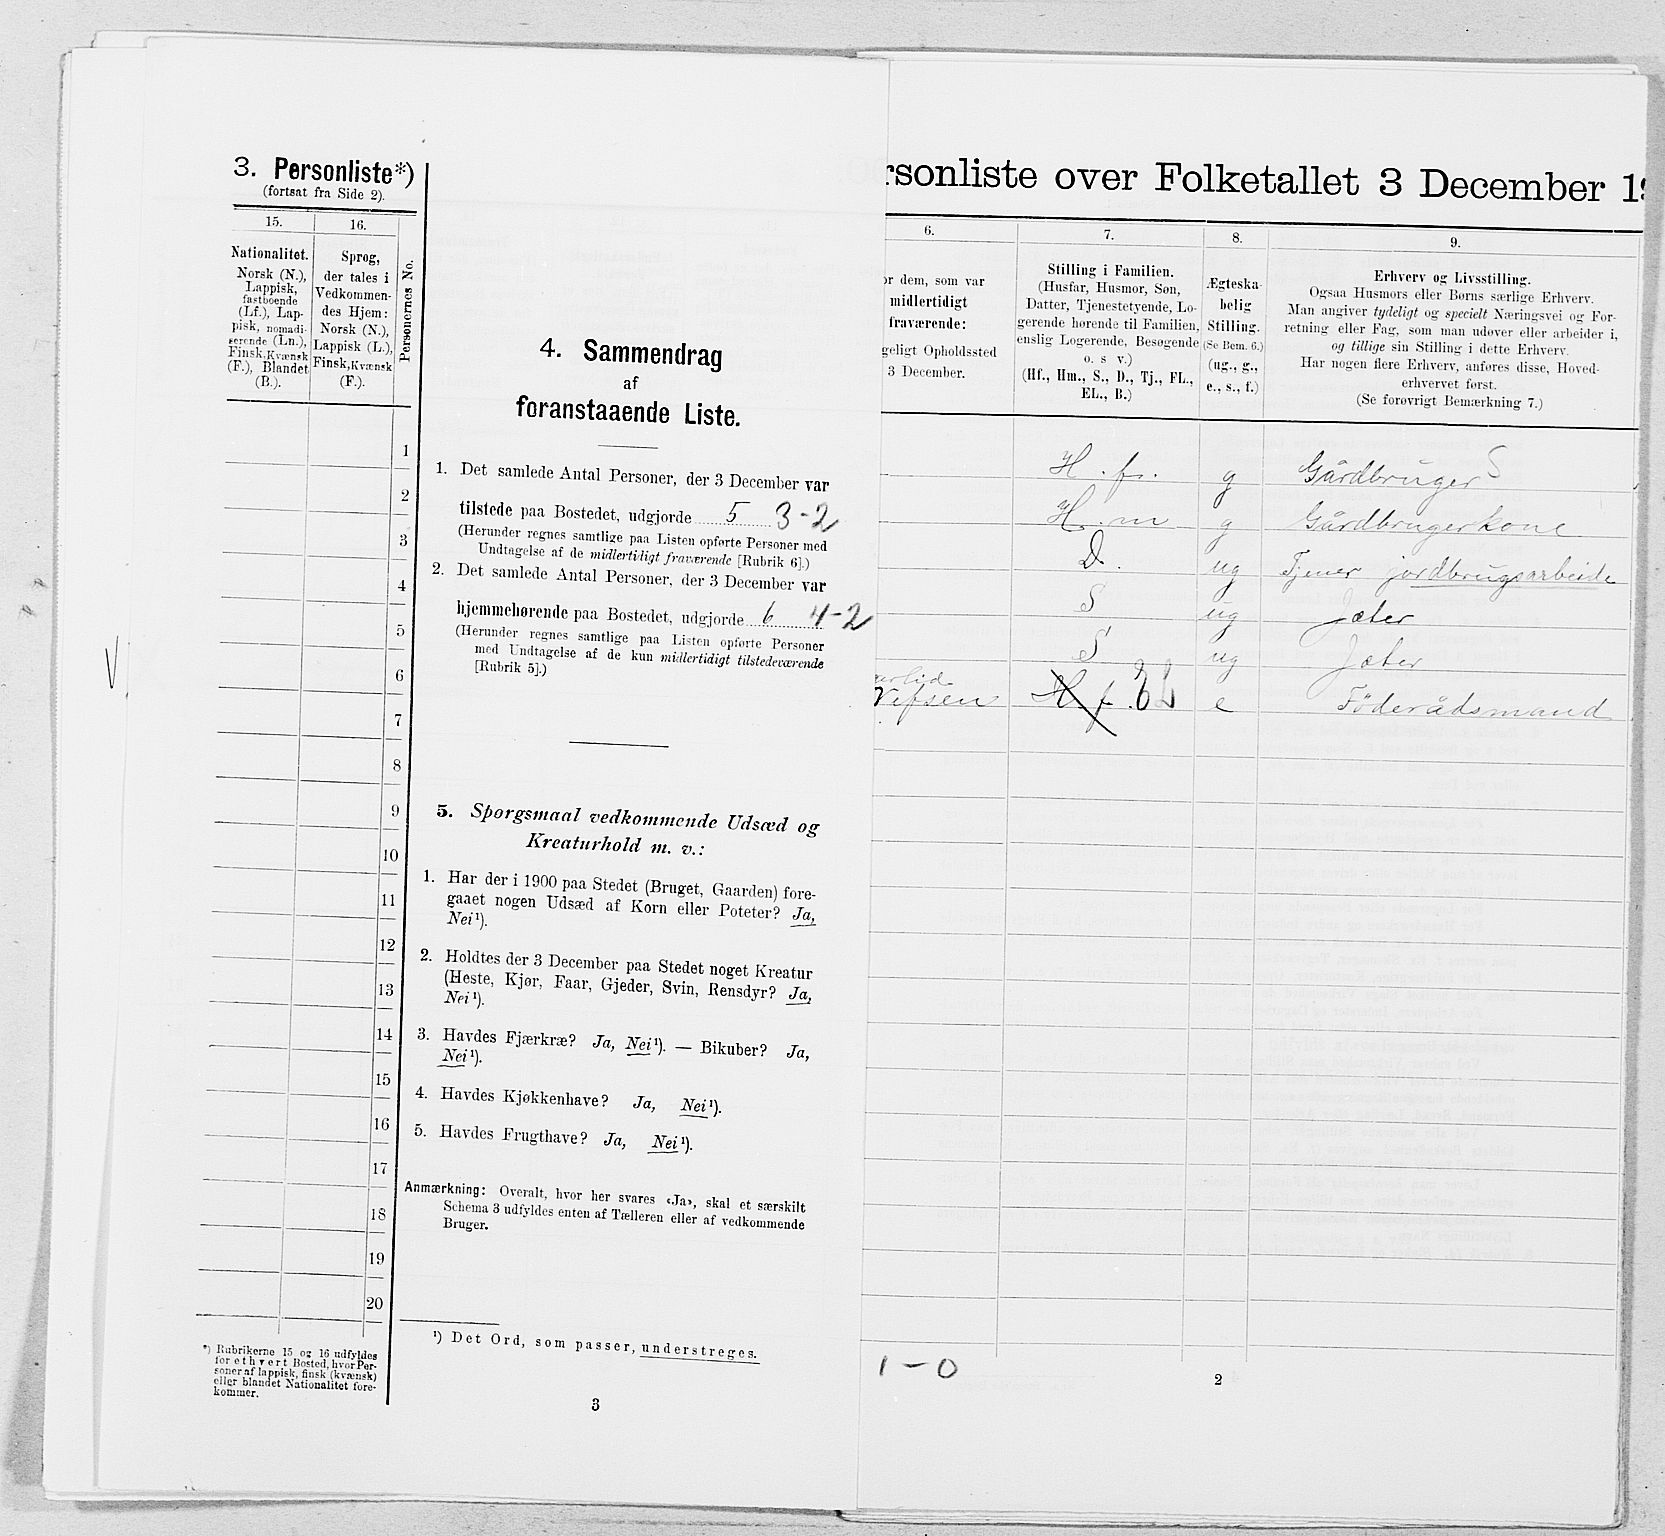 3. Personliste*)
(fortsat fra Side 2).
15.
16.
Nationalitet.
Norsk (N.),
Lappisk,
fastboende
(Lf.), Lap-
pisk, nomadi-
serende (Ln.),
Finsk, Kvænsk
(F.), Blandet
(B.).
Sprog,
der tales i
Vedkommen-
des Hjem:
Norsk (N.),
Lappisk (L.),
Finsk, Kvænsk
(F.).
Personernes No.
1
2
3
4
5
6
7
8
9
10
11
12
13
14
15
16
17
18
19
20
*) Rubrikerne 15 og 16 udfyldes
for ethvert Bosted, hvor Per-
soner af lappisk, finsk (kvænsk)
eller blandet Nationalitet fore-
kommer.
4. Sammendrag
af
foranstaaende Liste.
1. Det samlede Antal Personer, der 3 December var
tilstede paa Bostedet, udgjorde 5 3-2
(Herunder regnes samtlige paa Listen opførte Personer med
Undtagelse af de midlertidigt fraværende [Rubrik 6].)
2. Det samlede Antal Personer, der 3 December var
hjemmehørende paa Bostedet, udgjorde 6 4-2
(Herunder regnes samtlige paa Listen opførte Personer
med Undtagelse af de kun midlertidigt tilstedeværende
[Rubrik 5].)
5. Spørgsmaal vedkommende Udsæd og
Kreaturhold m. v.:
1. Har der i 1900 paa Stedet (Bruget, Gaarden) fore-
gaaet nogen Udsæd af Korn eller Poteter? Ja,
Nei ¹).
2. Holdtes der 3 December paa Stedet noget Kreatur
(Heste, Kjør, Faar, Gjeder, Svin, Rensdyr? Ja,
Nei ¹).
3. Havdes Fjærkræ? Ja, Nei ¹). — Bikuber? Ja,
Nei ¹).
4. Havdes Kjøkkenhave? Ja, Nei ¹).
5. Havdes Frugthave? Ja, Nei ¹).
Anmærkning: Overalt, hvor her svares «Ja», skal et særskilt
Schema 3 udfyldes enten af Tælleren eller af vedkommende
Bruger.
¹) Det Ord, som passer, understreges.
3
V
rsonliste over Folketallet 3 December 19
6.
7.
8.
9.
or dem, som var
midlertidigt
fraværende:
geligt Opholdssted
3 December.
Stilling i Familien.
(Husfar, Husmor, Søn,
Datter, Tjenestetyende, Lo-
gerende hørende til Familien,
enslig Logerende, Besøgende
o. s v.)
(Hf., Hm., S., D., Tj., FL.,
EL., B.)
Ægteska-
belig
Stilling.
(Se Bem. 6.)
(ug., g.,
e., s., f.)
Erhverv og Livsstilling.
Ogsaa Husmors eller Børns særlige Erhverv.
Man angiver tydeligt og specielt Næringsvei og For-
retning eller Fag, som man udøver eller arbeider i,
og tillige sin Stilling i dette Erhverv.
Har nogen flere Erhverv, anføres disse, Hoved-
erhvervet først.
(Se forøvrigt Bemærkning 7.)
H. f. g Gårdbruger S
H. m g Gårdbrugerkone
D. ug Tjener jordbrugsarbeide
S ug Jæter
S ug Jæter
Vefsen H f. e Föderådsmand
1-0
2